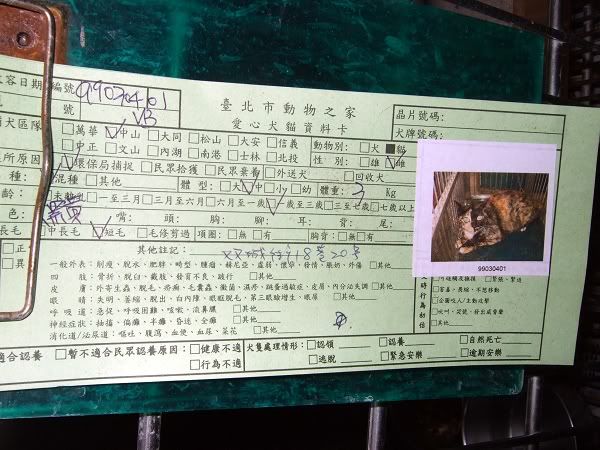 臺北市動物之家
愛心犬貓資料卡
容日期 編號 99030401 晶片號碼:
號 VB 犬牌號碼:
犬區隊 □萬華 ☑中山 □大同 □松山 □大安 □信義 動物別: □犬 ■貓
□中正 □文山 □內湖 □南港 □士林 □北投 性別: □雄 ☑雌
所原因 ☑環保局捕捉 □民眾拾獲 □民眾棄養 □外送犬 □回收犬
□混種 □其他 體型: □大 ☑中 □小 □幼 體重: 3 Kg
齡: □未離乳 □一至三月 □三月至六月 □六月至一歲 ☑一歲至三歲 □三歲至七歲 □七歲以上
色: 嘴: 頭: 胸: 腳: 耳: 背: 尾:
長毛 □中長毛 ☑短毛 □毛修剪過 項圈: □無 □有 胸背: □無 □有
□正 其他註記: 18巷20弄
□異 一般外表: 削瘦、脫水、肥胖、畸型、腫瘤、赫尼亞、虛弱、懷孕、發情、脹奶、外傷 □其他
四肢: 骨折、脫臼、截肢、發育不良、跛行 □其他
皮膚: 外寄生蟲、脫毛、疥癬、毛囊蟲、黴菌、濕疹、跳蚤過敏症、膿皮症、內分泌失調 □其他
眼睛: 失明、萎縮、脫出、白內障、眼瞼脫毛、第三眼瞼增生、眼屎 □其他
呼吸道: 急促、呼吸困難、咳嗽、流鼻膿 □其他
神經症狀: 抽搐、偏癱、半癱、昏迷、全癱 □其他
消化道/泌尿道: 嘔吐、腹瀉、血便、血尿、菜花 □其他
99030401
時行為初估
□緊張、緊追
□害羞、畏縮、不想移動
□企圖咬人/主動攻擊
□吠叫、哀號、發出威脅聲
□其他
適合認養 □暫不適合民眾認養原因: □健康不適 □行為不適
犬隻處理情形: □認領 □認養 □自然死亡
□逃脫 □緊急安樂 □逾期安樂